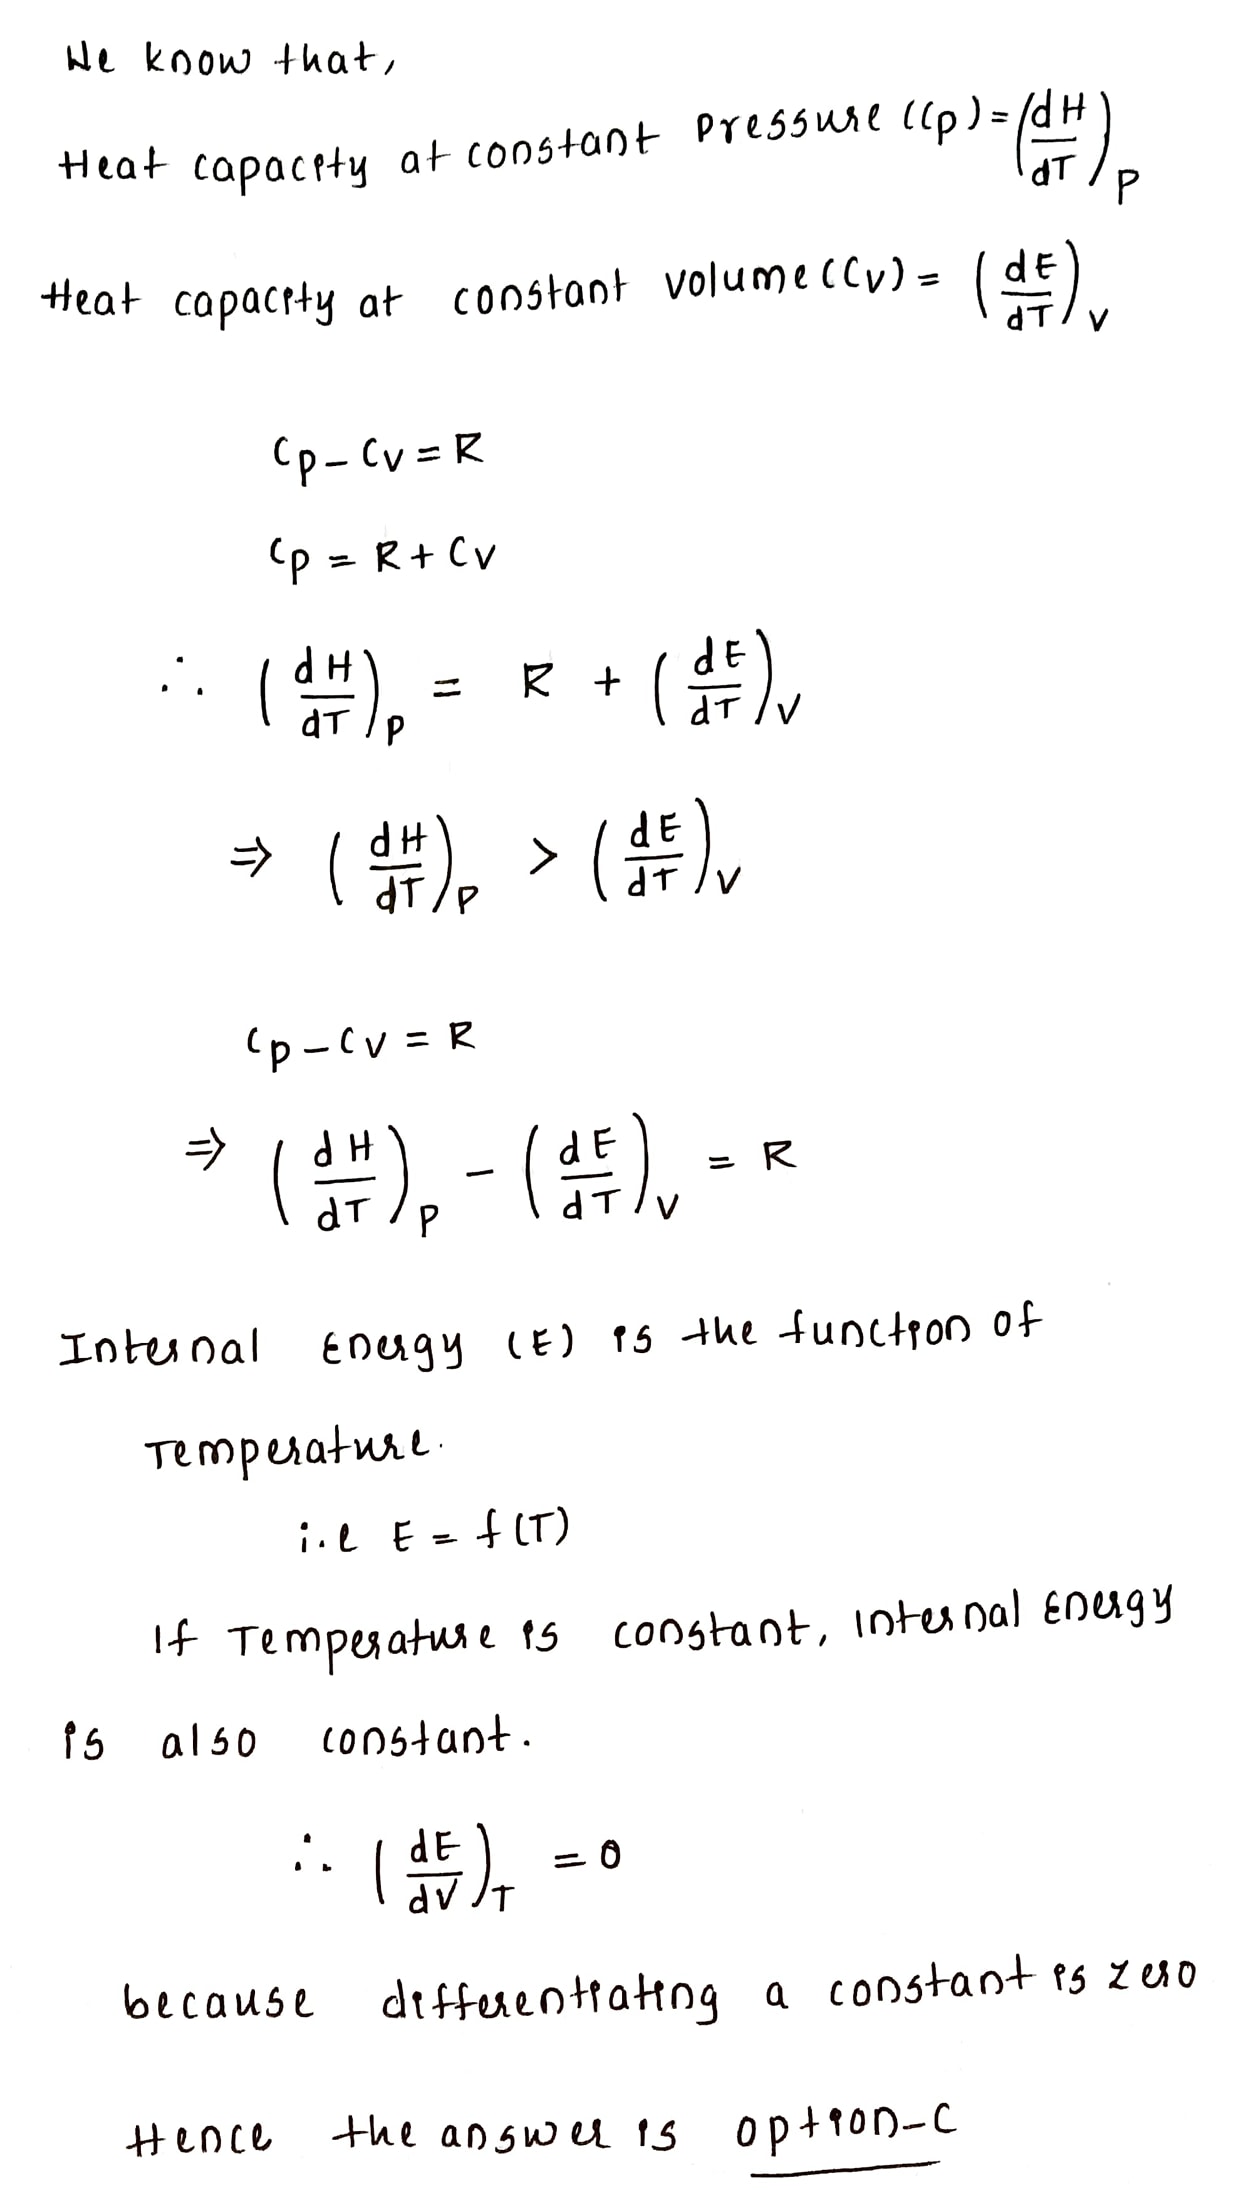 We know that,
Heat capacity at constant pressure (Cp) = (dH/dT)P
Heat capacity at constant volume (Cv) = (dE/dT)V
Cp – Cv = R
Cp = R + Cv
∴ (dH/dT)P = R + (dE/dT)V
⇒ (dH/dT)P > (dE/dT)V
Cp – Cv = R
⇒ (dH/dT)P – (dE/dT)V = R
Internal Energy (E) is the function of
Temperature.
i.e E = f(T)
If Temperature is constant, internal Energy
is also constant.
∴ (dE/dV)T = 0
because differentiating a constant is zero
Hence the answer is option–C